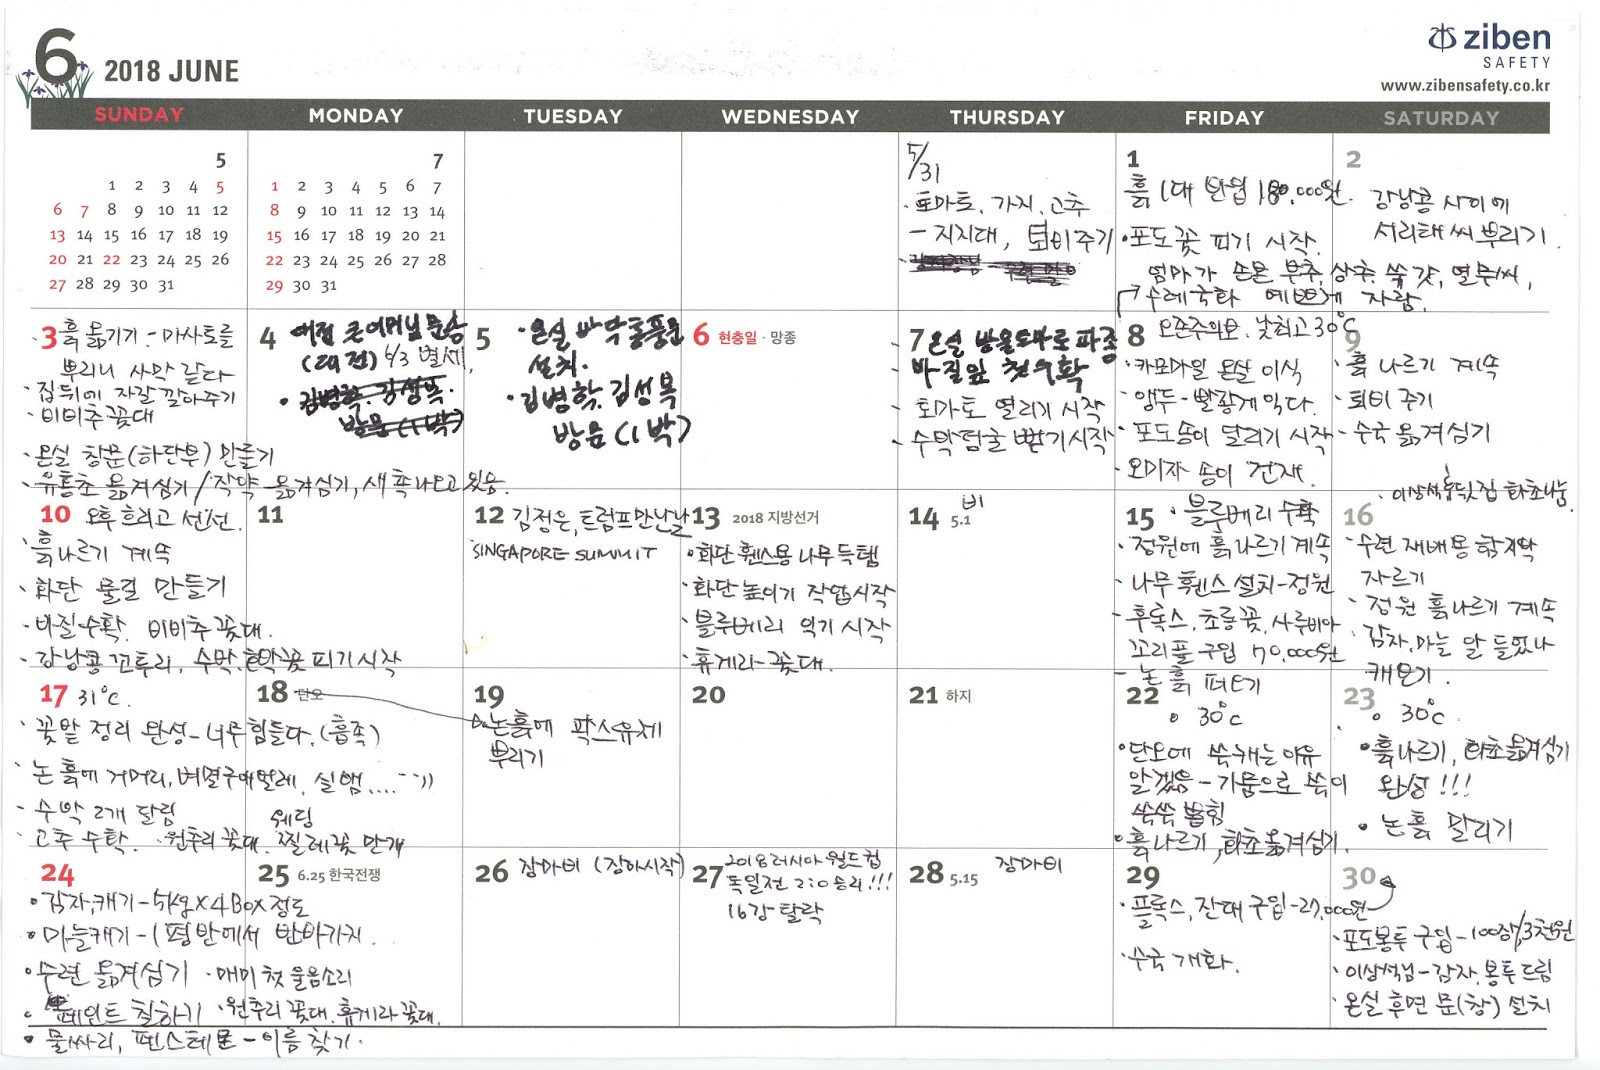 6 2018 JUNE
ziben
SAFETY
www.zibensafety.co.kr
SUNDAY MONDAY TUESDAY WEDNESDAY THURSDAY FRIDAY SATURDAY
5
1 2 3 4 5
6 7 8 9 10 11 12
13 14 15 16 17 18 19
20 21 22 23 24 25 26
27 28 29 30 31
7
1 2 3 4 5 6 7
8 9 10 11 12 13 14
15 16 17 18 19 20 21
22 23 24 25 26 27 28
29 30 31
5/31
· 토마토. 가지. 고추
- 지지대, 퇴비주기
1
흙 1대 반입 180,000원.
· 포도꽃 피기 시작.
엄마가 손본 부추, 상추, 쑥갓, 열무씨,
수레국화 예쁘게 자람.
2
강낭콩 사이에
서리태씨 뿌리기.
· 3 흙 옮기기 - 마사토를
뿌리니 사막 같다
· 집뒤에 자갈 깔아주기
· 비비추 꽃대
· 온실 창문(하단부) 만들기
· 유통초 옮겨심기 / 작약 옮겨심기, 새 촉 나오고 있음.
4 예정 큰어머님
(대전) 6/3 별세.
· 김병학, 김성복.
방문 (1박)
5 · 온실 바닥
설치.
· 김병학, 김성복
방문 (1박)
6 현충일 · 망종
7 온실 방울토마토 파종
바질잎 첫수확
- 토마토 열리기 시작
- 수박덩굴 뻗기시작
8 오존주의보. 낮최고 30℃
· 카모마일 온실 이식
· 앵두 - 빨갛게 익다.
· 포도송이 달리기 시작
· 오미자 송이 건재.
9
· 흙 나르기 계속
· 퇴비 주기
· 수국 옮겨심기
화초나눔.
10 오후 흐리고 선선.
· 흙나르기 계속
· 화단 물길 만들기
· 바질수확. 비비추 꽃대.
· 강낭콩 꼬투리, 수박, 호박꽃 피기시작
11
12 김정은, 트럼프만난날
SINGAPORE SUMMIT
13 2018 지방선거
· 화단 휀스용 나무 득템
· 화단 높이기 작업시작
· 블루베리 익기 시작
· 휴케라 꽃대.
14 5.1
비
15 · 블루베리 수확
· 정원에 흙나르기 계속
· 나무 휀스 설치 - 정원
· 후록스, 초롱꽃, 사루비아
꼬리풀 구입 70,000원
- 논 흙 퍼오기
16
· 수련 재배용 함지박
자르기
· 정원 흙나르기 계속
· 감자, 마늘 알 들었나
캐보기.
17 31℃.
· 꽃밭 정리 완성 - 너무힘들다. (흡족)
· 논 흙에 거머리, 벼멸구애벌레, 실뱀....
· 수박 2개 달림
· 고추 수확. · 원추리 꽃대. 찔레꽃 만개
18 단오
웨딩
19
논흙에 팍스유제
뿌리기
20
21 하지
22
° 30℃
· 단오에 쑥캐는 이유
알겠음 - 가뭄으로 쑥이
쑥쑥 뽑힘
· 흙나르기, 화초옮겨심기.
23
° 30℃.
· 흙나르기, 화초옮겨심기
완성!!!
· 논흙 말리기
24
· 감자,캐기 - 5kg × 4 Box 정도
· 마늘캐기 - 1평반에서 반바가지.
· 수련 옮겨심기 · 매미 첫 울음소리
· 페인트 칠하기 · 원추리 꽃대. 휴케라 꽃대.
· 물싸리, 펜스테몬 - 이름 찾기.
25 6.25 한국전쟁
26 장마비 (장마시작)
27 2018 러시아 월드컵
독일전 2:0 승리!!!
16강 탈락
28 5.15
장마비
29
· 플록스, 잔대 구입 - 27,000원
· 수국 개화.
30
· 포도봉투 구입 - 100장/3천원
· 이상석님 - 감자, 봉투 드림
· 온실 후면 문(창) 설치